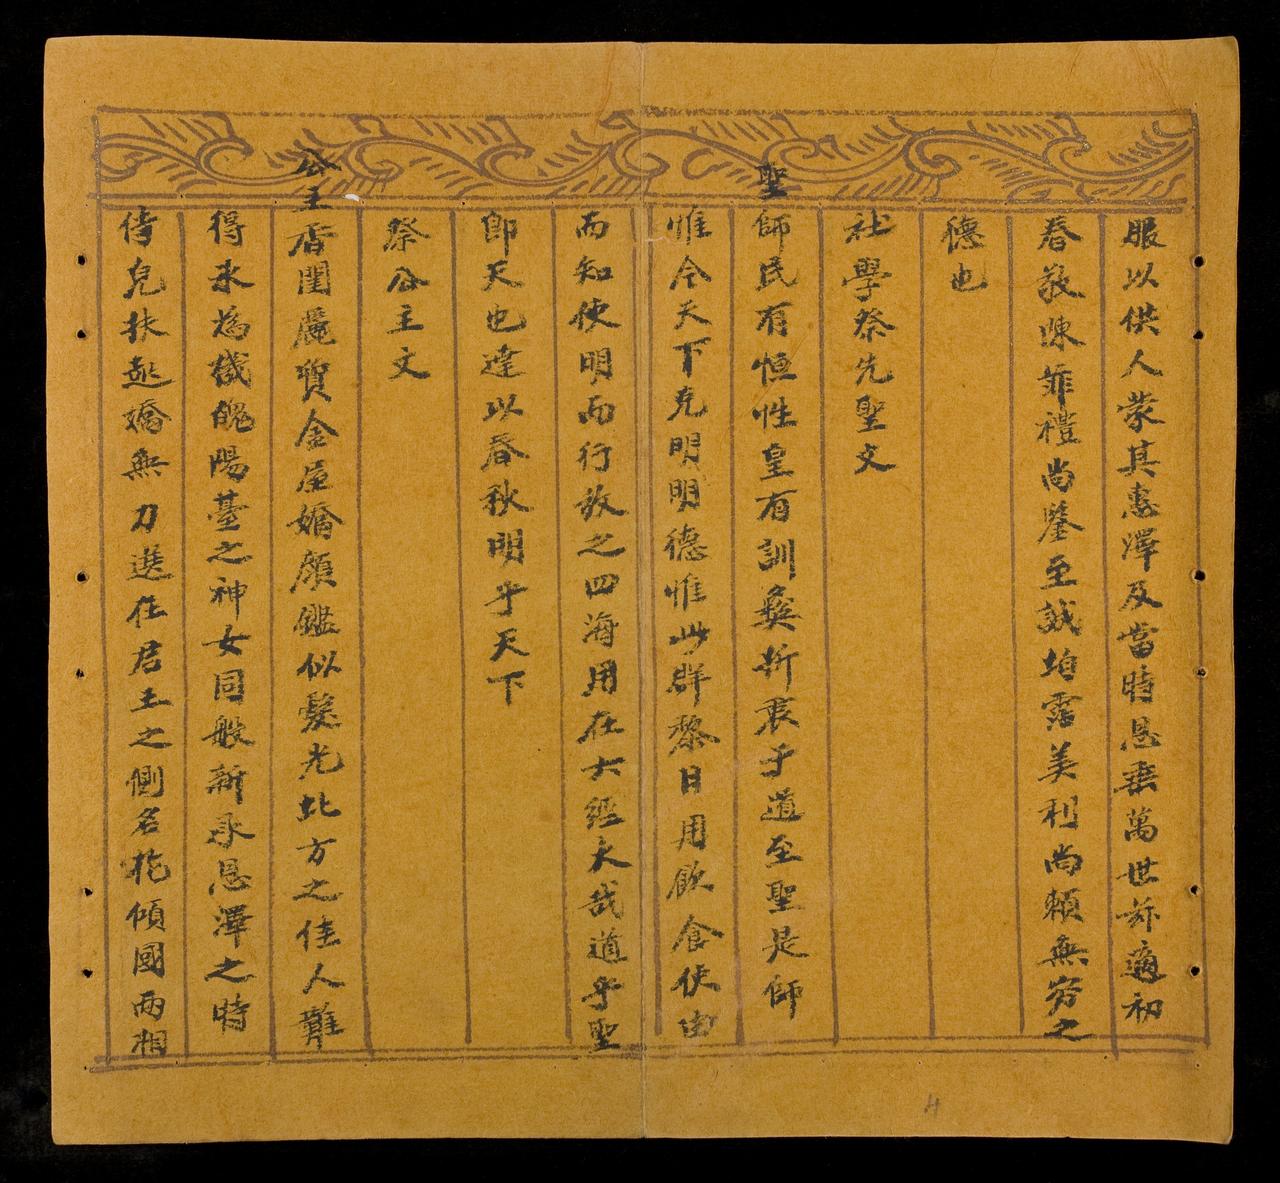 服以供人蒙其惠澤及當時恩垂萬世茲適初
春敬陳菲禮尚鑒至誠均霑美利尚賴無窮之
德也
社學祭先聖文
聖師民有恒性皇有訓彜折衷于道至聖是師
惟今天下克明明德惟此群黎日用飲食使由
而知使明而行放之四海用在大經大哉道乎聖
即天也達以春秋明乎天下
祭公主文
公主香閨麗質金屋嬌顔鑑似髮光北方之佳人難
得永為識愧陽臺之神女同般新承恩澤之時
侍兒扶起嬌無力選在君王之側名花傾國兩相